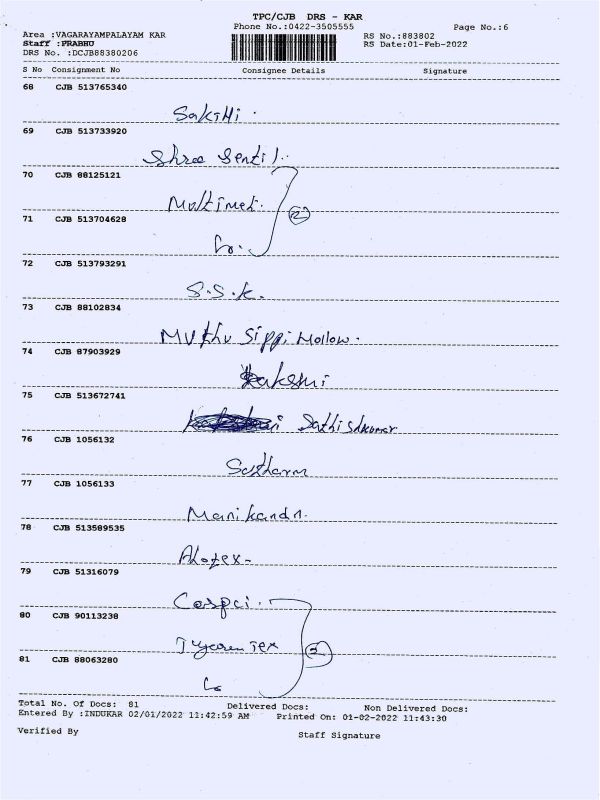 TPC/CJB DRS - KAR
Phone No.:0422-3505555
Page No.:6
Area :VAGARAYAMPALAYAM KAR
RS No.:883802
Staff :PRABHU
RS Date:01-Feb-2022
DRS No. :DCJB88380206
S No Consignment No Consignee Details Signature
68 CJB 513765340
Sakthi.
69 CJB 513733920
Shree Sentil.
70 CJB 88125121
Multimet.
2
71 CJB 513704628
72 CJB 513793291
S.S.K.
73 CJB 88102834
Muthu Sippi Mollow.
74 CJB 87903929
75 CJB 513672741
Sathishkumar
76 CJB 1056132
77 CJB 1056133
Manikandn.
78 CJB 513589535
79 CJB 51316079
80 CJB 90113238
Tex
81 CJB 88063280
Total No. Of Docs: 81 Delivered Docs: Non Delivered Docs:
Entered By :INDUKAR 02/01/2022 11:42:59 AM Printed On: 01-02-2022 11:43:30
Verified By Staff Signature